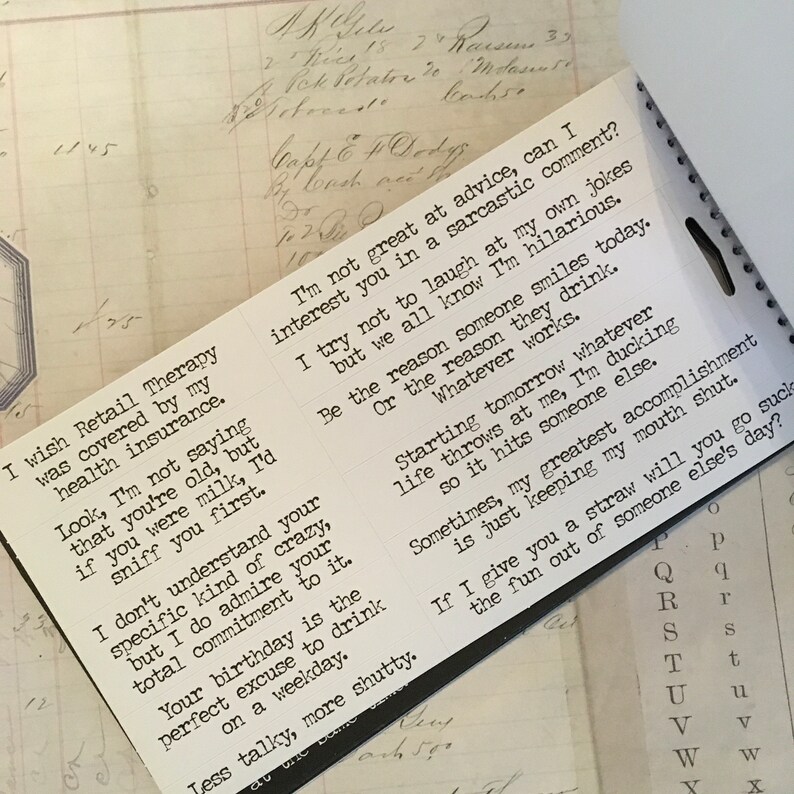 A K Gile
Rice 18
Raisins 33
Pck Potatoes 20
Tobacco 10
Cash 50
11 45
Capt E F Dodge
By Cash
Do
I'm not great at advice, can I
interest you in a sarcastic comment?
I try not to laugh at my own jokes
but we all know I'm hilarious.
Be the reason someone smiles today.
Or the reason they drink.
Whatever works.
Starting tomorrow whatever
life throws at me, I'm ducking
so it hits someone else.
Sometimes, my greatest accomplishment
is just keeping my mouth shut.
If I give you a straw will you go suck
the fun out of someone else's day?
I wish Retail Therapy
was covered by my
health insurance.
Look, I'm not saying
that you're old, but
if you were milk, I'd
sniff you first.
I don't understand your
specific kind of crazy,
but I do admire your
total commitment to it.
Your birthday is the
perfect excuse to drink
on a weekday.
Less talky, more shutty.
at the same time.
12
o
P p
Q q
R r
S s
T t
U u
V v
W w
X x